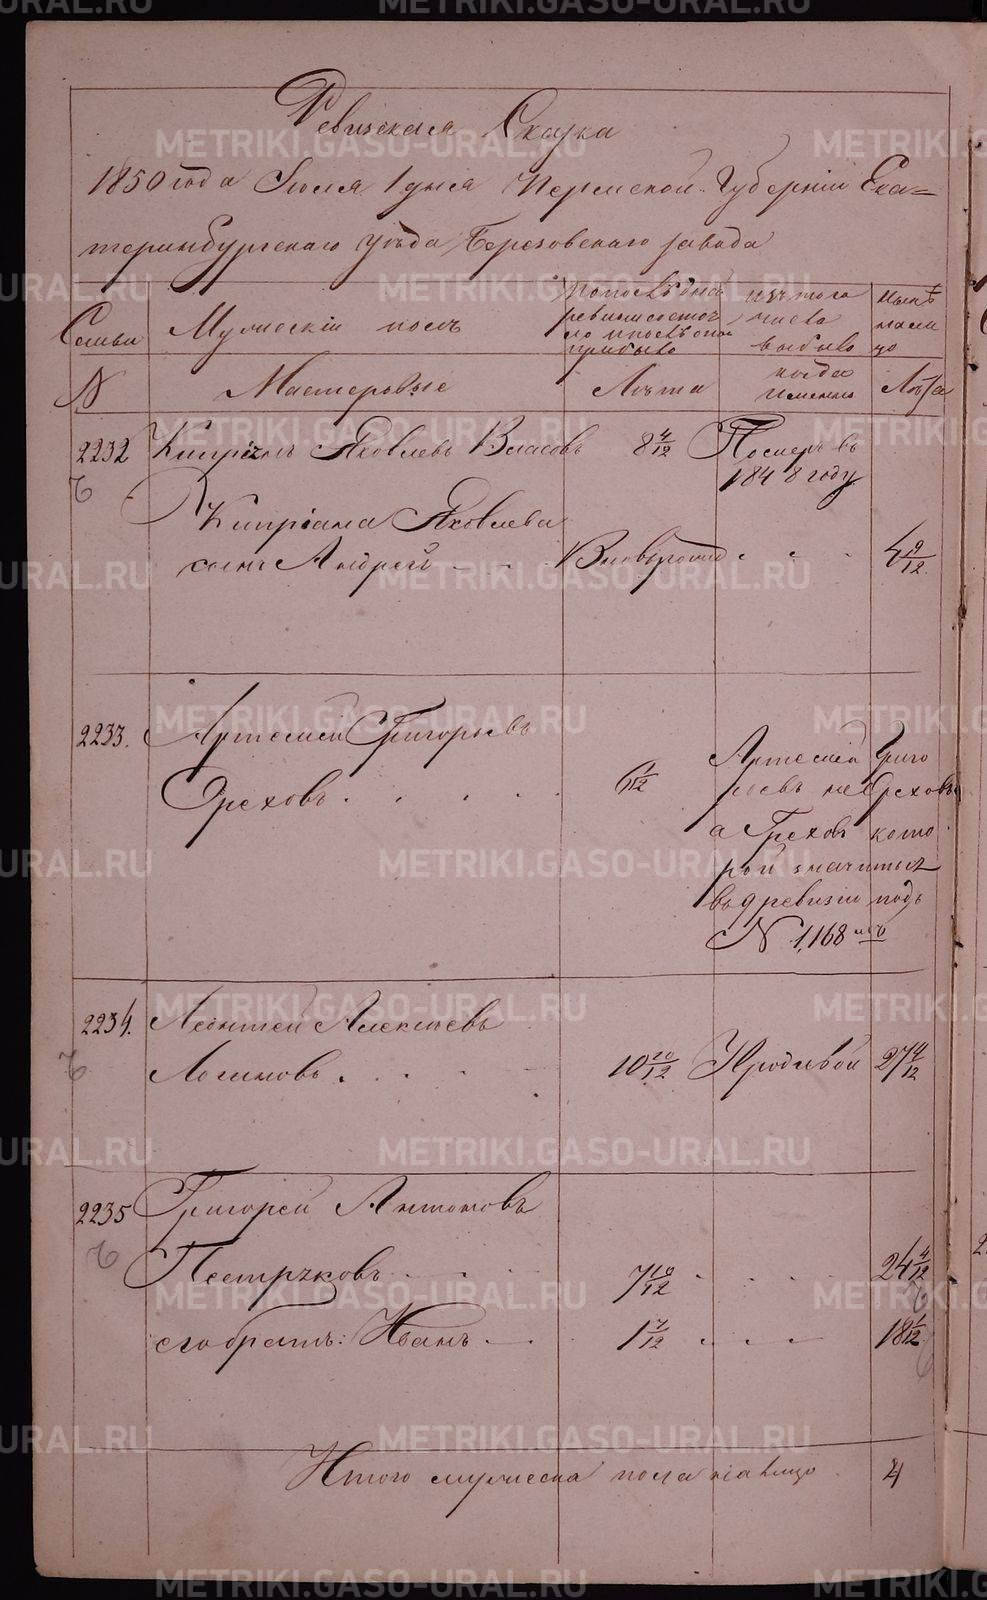 Ревизская Сказка
1850 года Июля 1 дня Пермской Губерніи Ека=
теринбургскаго уѣзда Березовскаго завода
Семьи
Мужескій полъ
По послѣдней
ревизіи состоя
ло и послѣ оной
прибыло
изъ того
числа
выбыло
нынѣ
на ли
цо
№
Мастеровые
Лѣта
когда
именно
Лѣта
2232 Кипріянъ Яковлевъ Власовъ 8 4/12 Померъ въ
1848 году
Кипріана Яковлева
сынъ Андрей Вновьрожд 4 9/12
2233. Артемій Григорьевъ
Ореховъ 6/12
Артемій Григо
рьевъ не Ореховъ
а Греховъ кото
рой значится
въ 9 ревизіи подъ
№ 1,168 мъ
2234. Леонтей Алексѣевъ
Логиновъ 10 10/12 Уродивой 27 4/12
2235 Григорей Антоновъ
Пестряковъ 7 10/12 24 4/12
его братъ: Иванъ 1 7/12 18 1/12
Итого мужеска пола на лицо 4
METRIKI.GASO-URAL.RU